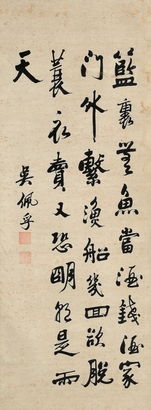 籃裏無魚當酒錢酒家
門外繫漁船幾回欲脫
蓑衣賣又恐明朝是雨
天
吳佩孚